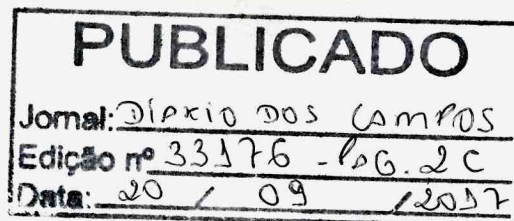 PUBLICADO
Jornal: DIÁRIO DOS CAMPOS
Edição nº 33176 - PÁG. 2C
Data: 20 / 09 / 2017